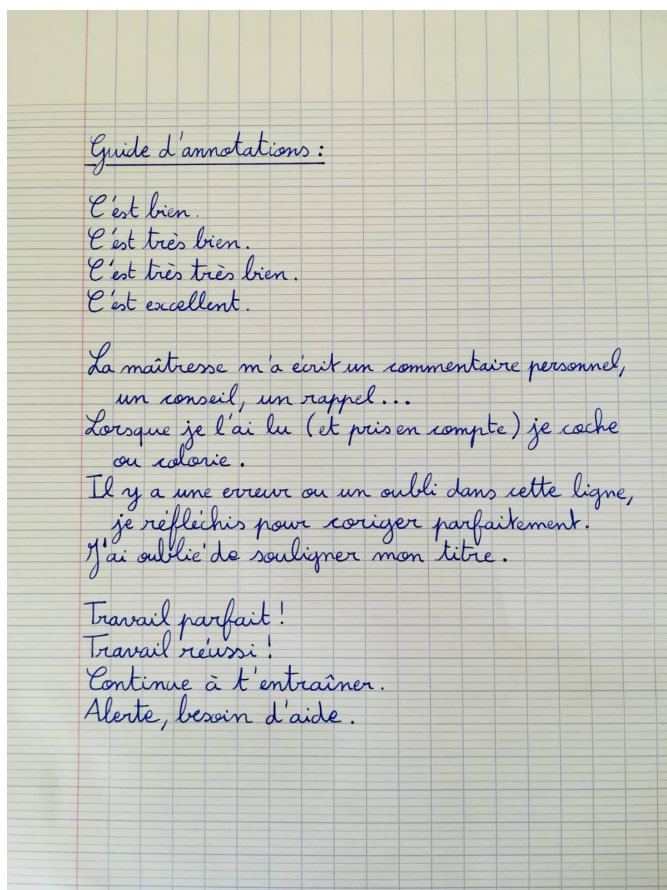 Guide d'annotations :
C'est bien.
C'est très bien.
C'est très très bien.
C'est excellent.
La maîtresse m'a écrit un commentaire personnel,
un conseil, un rappel...
Lorsque je l'ai lu (et pris en compte) je coche
ou colorie.
Il y a une erreur ou un oubli dans cette ligne,
je réfléchis pour coriger parfaitement.
J'ai oublié de souligner mon titre.
Travail parfait !
Travail réussi !
Continue à t'entraîner.
Alerte, besoin d'aide.